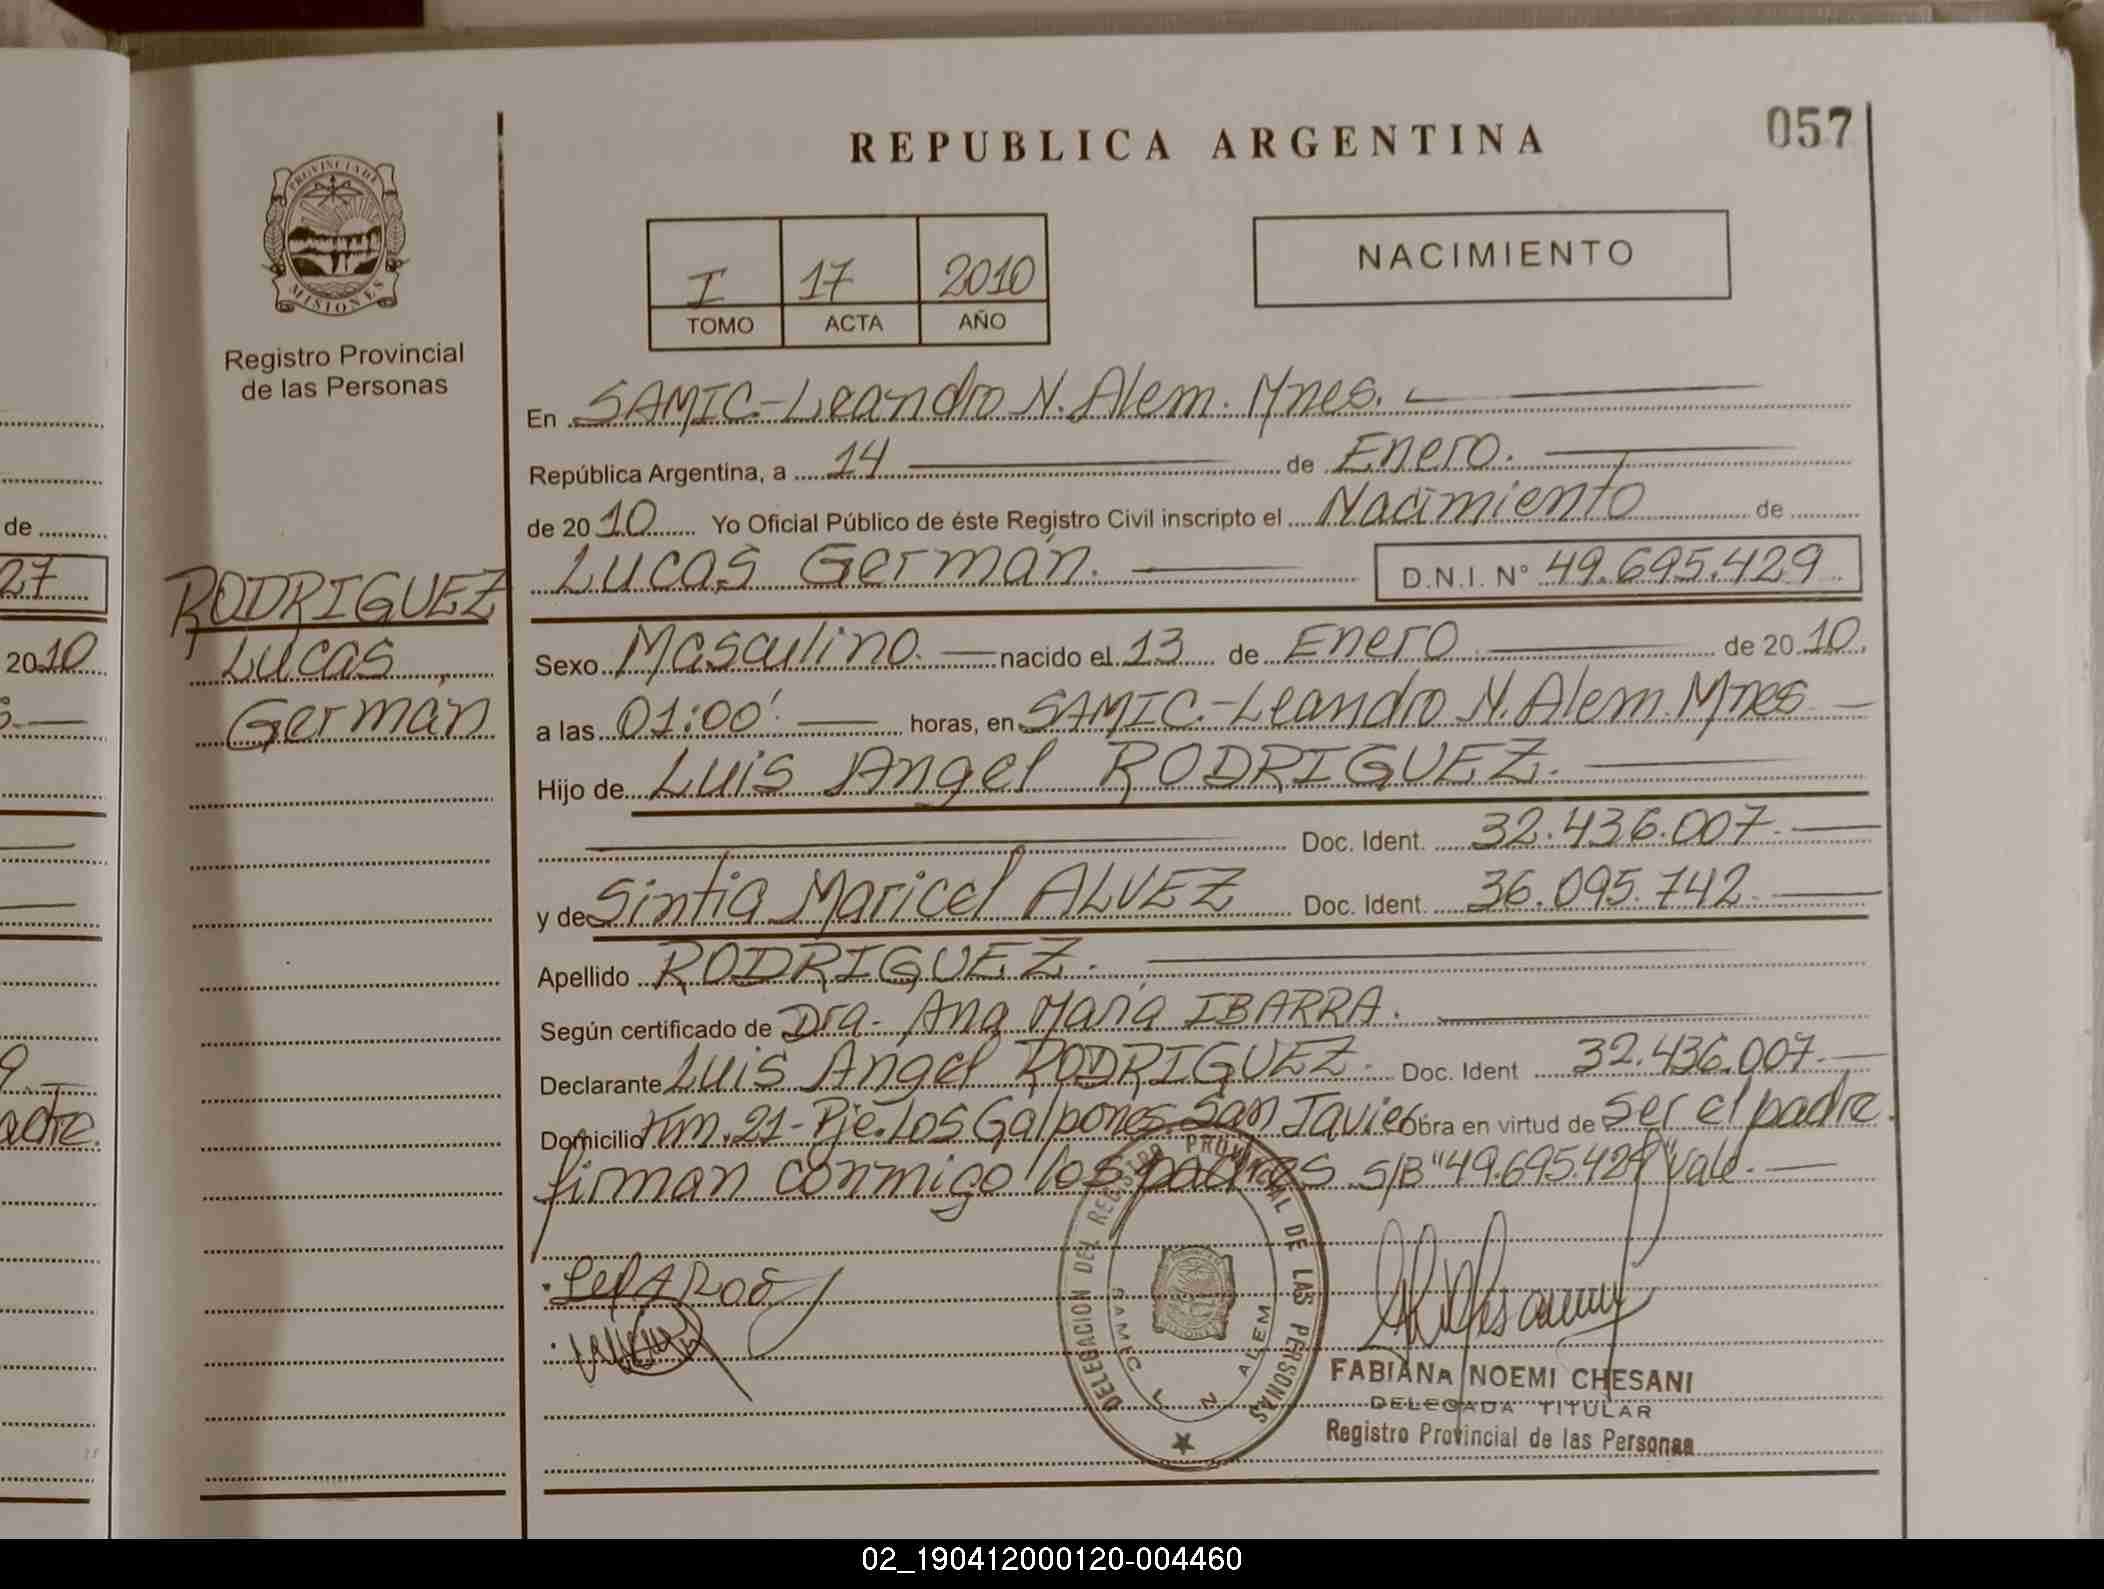 REPUBLICA ARGENTINA
057
PROVINCIA DE
MISIONES
Registro Provincial
de las Personas
I 17 2010
TOMO ACTA AÑO
NACIMIENTO
En SAMIC.-Leandro N. Alem. Mnes.
República Argentina, a 14 de Enero.
de 2010 Yo Oficial Público de éste Registro Civil inscripto el Nacimiento de
Lucas Germán. D.N.I. N° 49.695.429
RODRIGUEZ
Lucas
Germán
Sexo Masculino. nacido el 13 de Enero de 2010.
a las 01:00' horas, en SAMIC.-Leandro N. Alem. Mnes
Hijo de Luis Angel RODRIGUEZ.
Doc. Ident. 32.436.007.
y de Sintia Maricel ALVEZ Doc. Ident. 36.095.742.
Apellido RODRIGUEZ.
Según certificado de Dra. Ana María IBARRA.
Declarante Luis Angel RODRIGUEZ. Doc. Ident 32.436.007.
Domicilio Km. 21-Pje. Los Galpones San Javier Obra en virtud de ser el padre.
firman conmigo los padres S/B "49.695.429" Vale.
DELEGACION DEL REGISTRO PROVINCIAL DE LAS PERSONAS
SAMIC L N ALEM
FABIANA NOEMI CHESANI
DELEGADA TITULAR
Registro Provincial de las Personas
de
27
2010
adre.
02_190412000120-004460